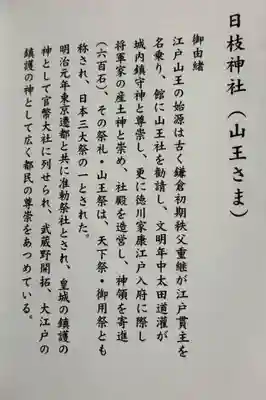 日枝神社(山王さま)
御由緒
江戸山王の始源は古く鎌倉初期秩父重継が江戸貫主を
名乗り、館に山王社を勧請し、文明年中太田道灌が
城内鎮守神と尊崇し、更に徳川家康江戸入府に際し
将軍家の産土神と崇め、社殿を造営し、神領を寄進
(六百石)、その祭礼・山王祭は、天下祭・御用祭とも
称され、日本三大祭の一とされた。
明治元年東京遷都と共に准勅祭社とされ、皇城の鎮護の
神として官幣大社に列せられ、武蔵野開拓、大江戸の
鎮護の神として広く都民の尊崇をあつめている。